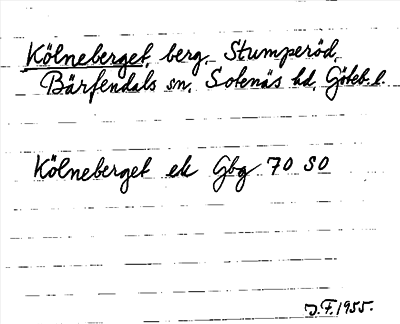 Kölneberget, berg, Stumperöd,
Bärfendals sn, Sotenäs hd, Göteb. l.
Kölneberget ek Gbg 70 SO
J.F. 1955.